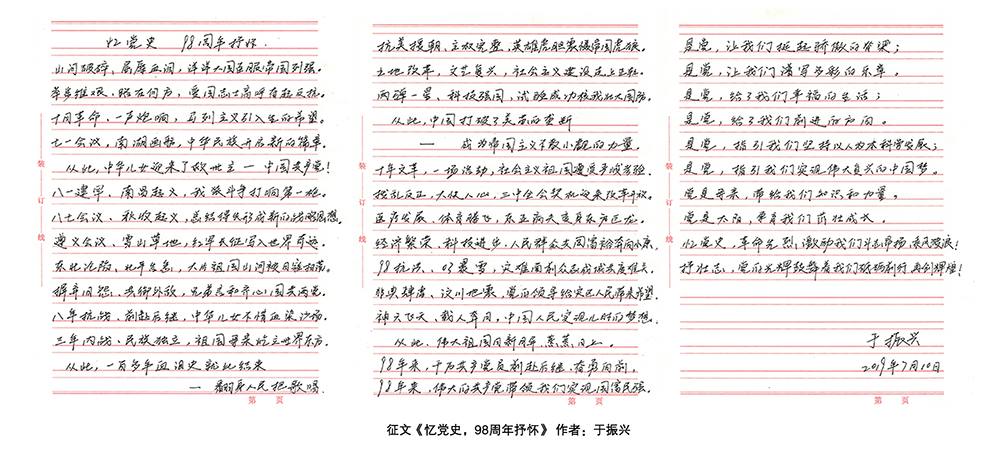 忆党史 98周年抒怀.
山河破碎、屠辱血泪，泱泱大国臣服帝国列强。
举步维艰、路在何方，爱国志士高呼奋起反抗。
十月革命、一声炮响，马列主义引入生的希望。
七一会议，南湖画舫，中华民族开启新的篇章。
从此，中华儿女迎来了救世主 — 中国共产党！
八一建军，南昌起义，武装斗争打响第一枪。
八七会议、秋收起义，总结经验形成新的战略思想。
遵义会议，雪山草地，红军长征写入世界奇迹。
东北沦陷、北平告急，大片祖国山河被日寇掠夺。
摒弃旧怨、共御外敌，兄弟言和齐心八国共两党。
八年抗战、前赴后继，中华儿女不惜血染沙场。
三年内战、民族独立，祖国母亲屹立世界东方。
从此，一百多年血泪史就此结束
— 翻身人民把歌唱.
第 页
抗美援朝、主权完整，英雄虎胆震慑帝国虎狼。
土地改革，文艺复兴，社会主义建设走上正轨。
两弹一星、科技强国，试验成功核我壮大国防。
从此，中国打破了美苏的垄断
— 成为帝国主义不敢小觑的力量.
十年文革，一场浩劫，社会主义祖国遭受重大考验。
拨乱反正，大快人心，三中全会契机迎来改革开放。
医疗发展、体育强飞，东亚病夫变身东方巨龙。
经济繁荣 科技进步，人民群众共同富裕奔向小康。
98抗洪、08暴雪，灾难面前众志成城共度难关。
非典肆虐、汶川地震，党的领导给灾区人民带来希望.
神六飞天、载人奔月，中国人民实现儿时的梦想.
从此、伟大祖国日新月异、蒸蒸日上。
98年来，千万共产党员前赴后继、奋勇向前，
98年来，伟大的共产党带领我们实现国富民强。
第 页
是党，让我们挺起骄傲的脊梁；
是党，让我们谱写多彩的乐章。
是党，给了我们幸福的生活；
是党，给了我们前进的方向。
是党，指引我们坚持以人为本科学发展；
是党，指引我们实现伟大复兴的中国梦。
党是母亲，带给我们知识和力量。
党是太阳，带着我们茁壮成长。
忆党史，革命先烈，激励我们斗志昂扬、乘风破浪！
抒壮志，党的光辉鼓舞着我们砥砺前行 再创辉煌！
于振兴
2019年7月10日
第 页
装
订
线
装
订
线
装
订
线
征文《忆党史，98周年抒怀》 作者：于振兴